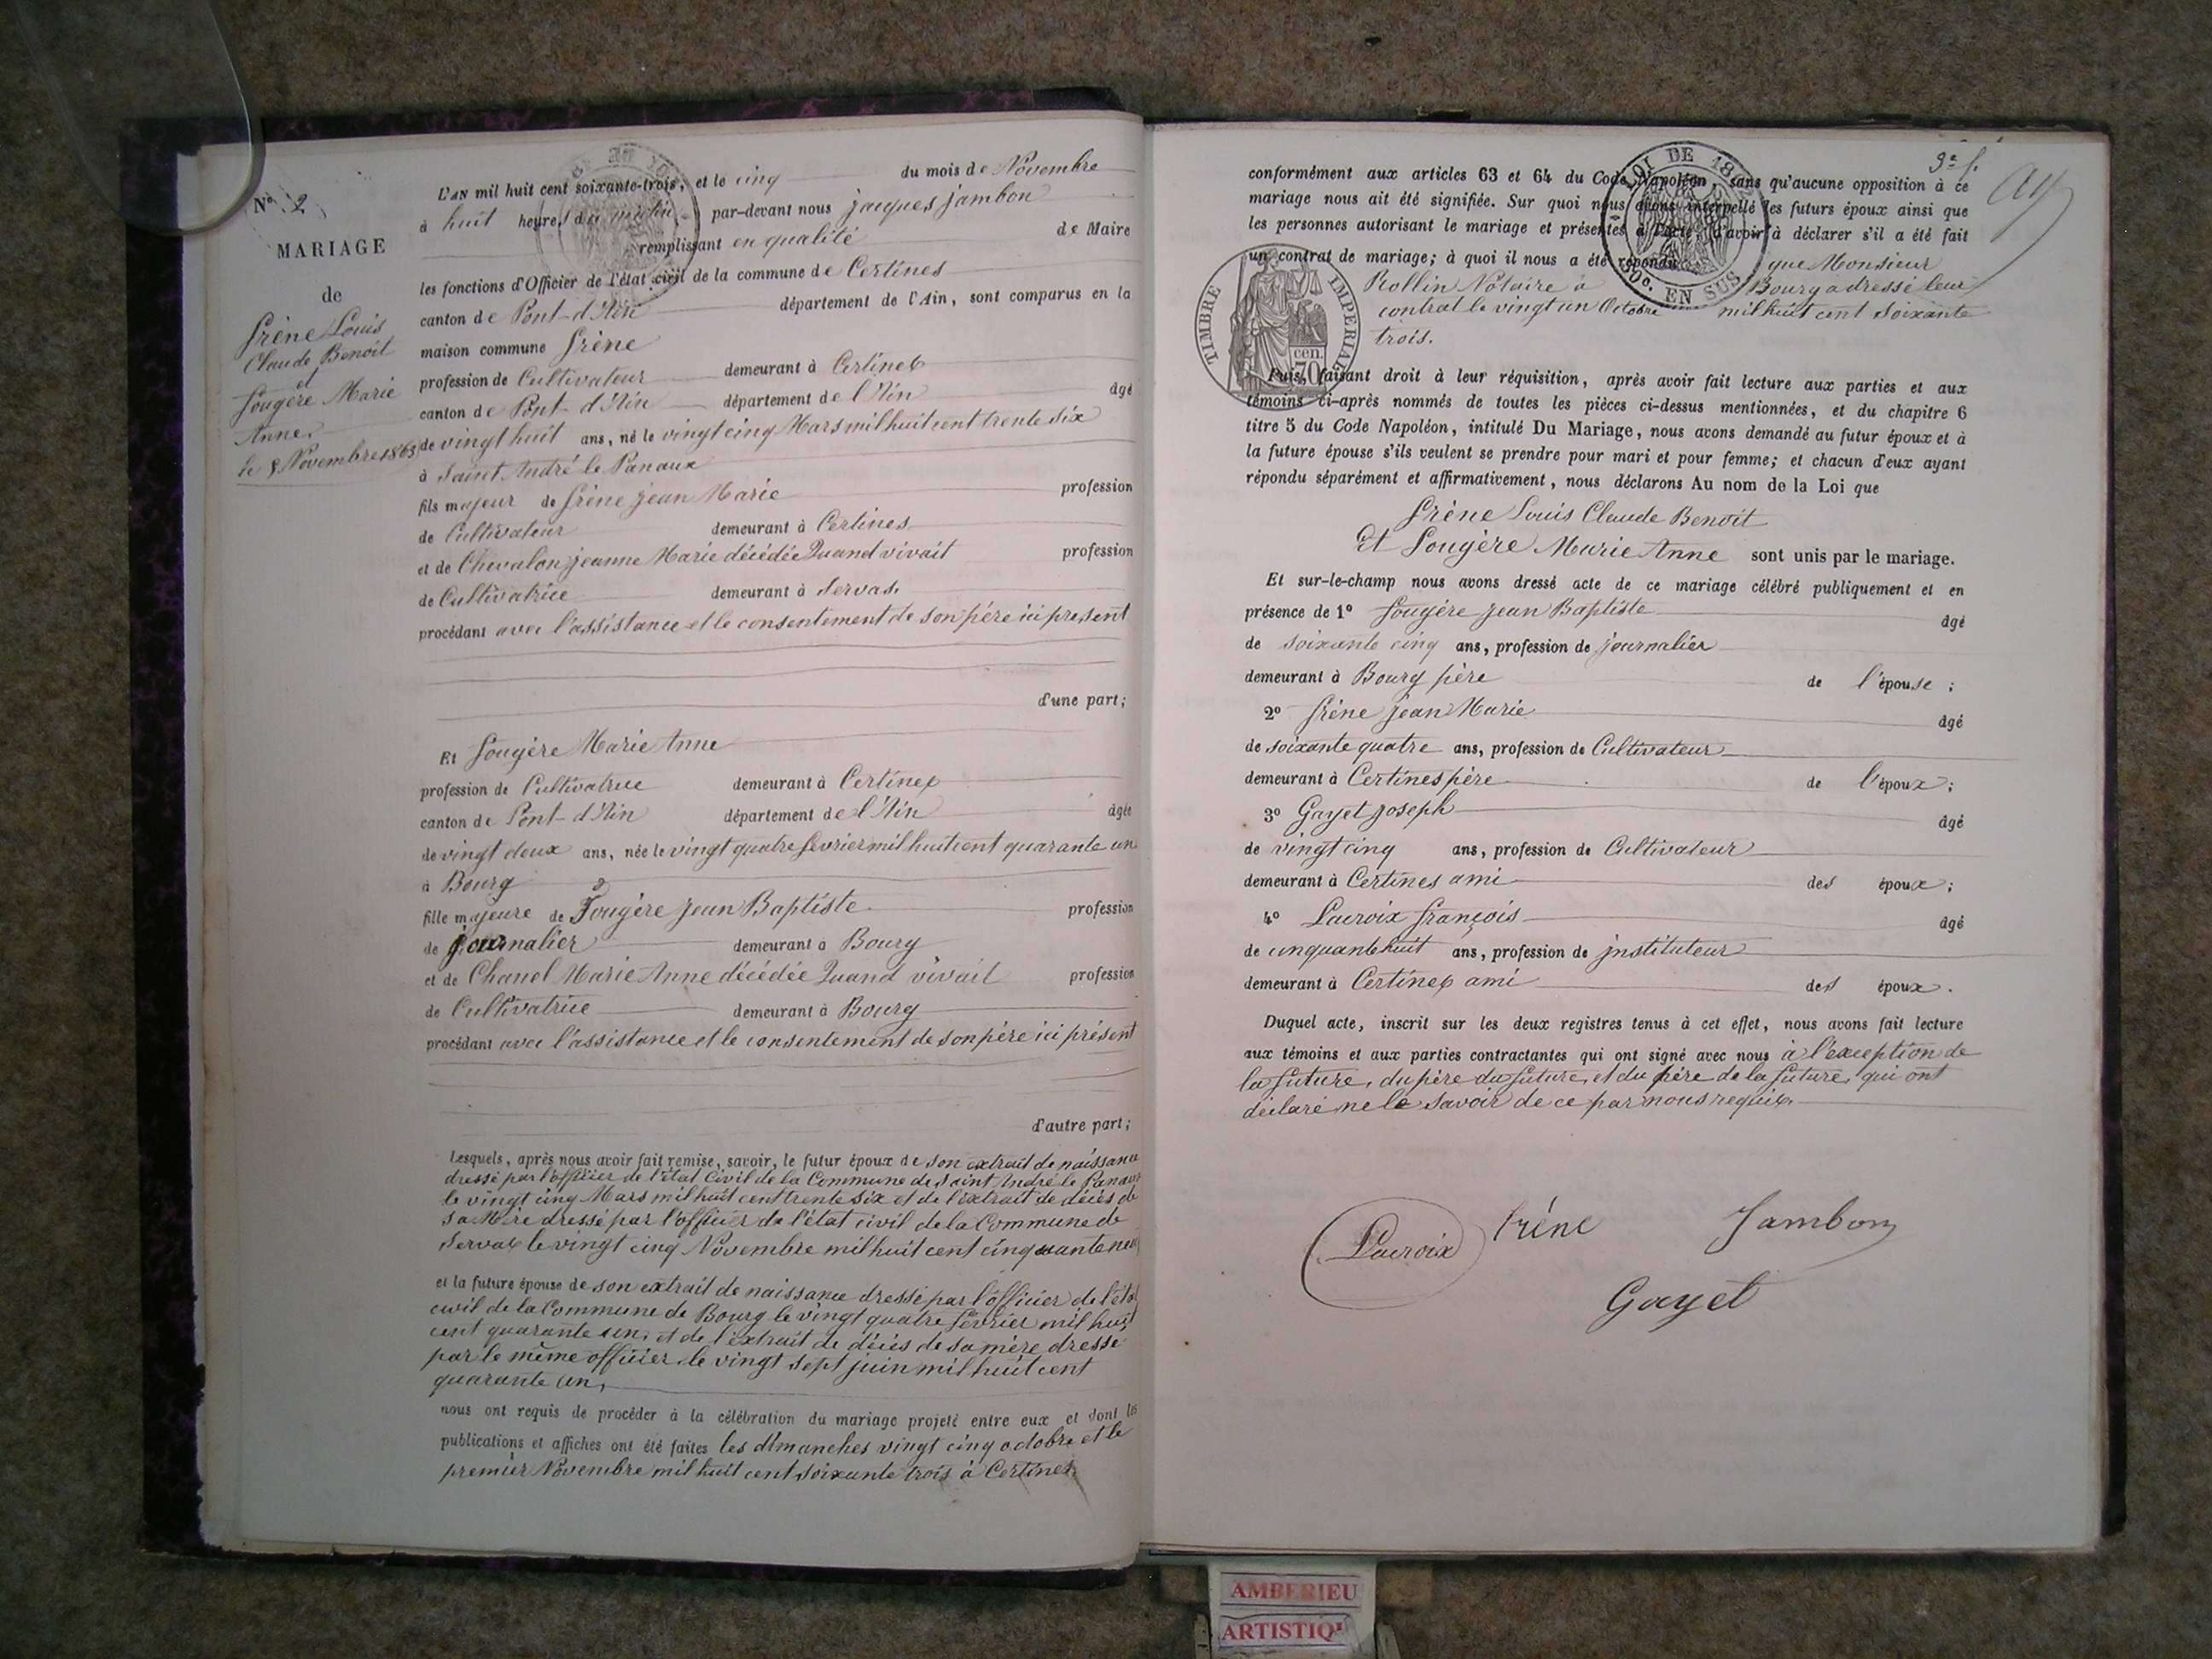 N° 2
MARIAGE
de
Frène Louis
Claude Benoit
et
Fougère Marie
Anne.
le 5 Novembre 1863
L'AN mil huit cent soixante-trois, et le cinq du mois de Novembre
à huit heures du matin, par-devant nous jacques jambon
remplissant en qualité de Maire
les fonctions d'Officier de l'état civil de la commune de Certines
canton de Pont-d'Ain département de l'Ain, sont comparus en la
maison commune Frène
profession de Cultivateur demeurant à Certines
canton de Pont-d'Ain département de l'Ain âgé
de vingt huit ans, né le vingt cinq Mars mil huit cent trente six
à Saint André le Panoux
fils majeur de Frène jean Marie profession
de Cultivateur demeurant à Certines
et de Chevalon jeanne Marie décédée Quand vivait profession
de Cultivatrice demeurant à Servas.
procédant avec l'assistance et le consentement de son père ici présent
d'une part;
Et Fougère Marie Anne
profession de Cultivatrice demeurant à Certines
canton de Pont-d'Ain département de l'Ain âgée
de vingt deux ans, née le vingt quatre fevrier mil huit cent quarante un
à Bourg
fille majeure de Fougère jean Baptiste profession
de journalier demeurant à Bourg
et de Chanel Marie Anne décédée Quand vivait profession
de Cultivatrice demeurant à Bourg
procédant avec l'assistance et le consentement de son père ici présent
d'autre part;
Lesquels, après nous avoir fait remise, savoir, le futur époux de son extrait de naissance
dressé par l'officier de l'état Civil de la Commune de Saint André le Panoux
le vingt cinq Mars mil huit cent trente six et de l'extrait de décès de
sa Mère dressé par l'officier de l'état civil de la Commune de
Servas le vingt cinq Novembre mil huit cent cinquante neuf
et la future épouse de son extrait de naissance dressé par l'officier de l'état
civil de la Commune de Bourg le vingt quatre fevrier mil huit
cent quarante un, et de l'extrait de décès de sa mère dressé
par le même officier le vingt sept juin mil huit cent
quarante un,
nous ont requis de procéder à la célébration du mariage projeté entre eux et dont les
publications et affiches ont été faites les dimanches vingt cinq octobre et le
premier Novembre mil huit cent soixante trois à Certines
3e f.
conformément aux articles 63 et 64 du Code Napoléon, sans qu'aucune opposition à ce
mariage nous ait été signifiée. Sur quoi nous avons interpellé les futurs époux ainsi que
les personnes autorisant le mariage et présentes à l'acte, d'avoir à déclarer s'il a été fait
un contrat de mariage; à quoi il nous a été répondu que Monsieur
Rollin Notaire à Bourg a dressé leur
contrat le vingt un Octobre mil huit cent soixante
trois.
LOI DE 18
50c. EN SUS
TIMBRE IMPERIAL
cen.
70
Puis, faisant droit à leur réquisition, après avoir fait lecture aux parties et aux
témoins ci-après nommés de toutes les pièces ci-dessus mentionnées, et du chapitre 6
titre 5 du Code Napoléon, intitulé Du Mariage, nous avons demandé au futur époux et à
la future épouse s'ils veulent se prendre pour mari et pour femme; et chacun d'eux ayant
répondu séparément et affirmativement, nous déclarons Au nom de la Loi que
Frène Louis Claude Benoit
Et Fougère Marie Anne sont unis par le mariage.
Et sur-le-champ nous avons dressé acte de ce mariage célébré publiquement et en
présence de 1° Fougère jean Baptiste âgé
de soixante cinq ans, profession de journalier
demeurant à Bourg père de l'épouse ;
2° Frène jean Marie âgé
de soixante quatre ans, profession de Cultivateur
demeurant à Certines père de l'époux ;
3° Gayet joseph âgé
de vingt cinq ans, profession de Cultivateur
demeurant à Certines ami des époux ;
4° Lacroix françois âgé
de cinquante huit ans, profession de instituteur
demeurant à Certines ami des époux.
Duquel acte, inscrit sur les deux registres tenus à cet effet, nous avons fait lecture
aux témoins et aux parties contractantes qui ont signé avec nous à l'exception de
la future, du père du future, et du père de la future, qui ont
déclaré ne le savoir de ce par nous requis.
Lacroix Fréne Jambon
Gayet
AMBERIEU
ARTISTIQ